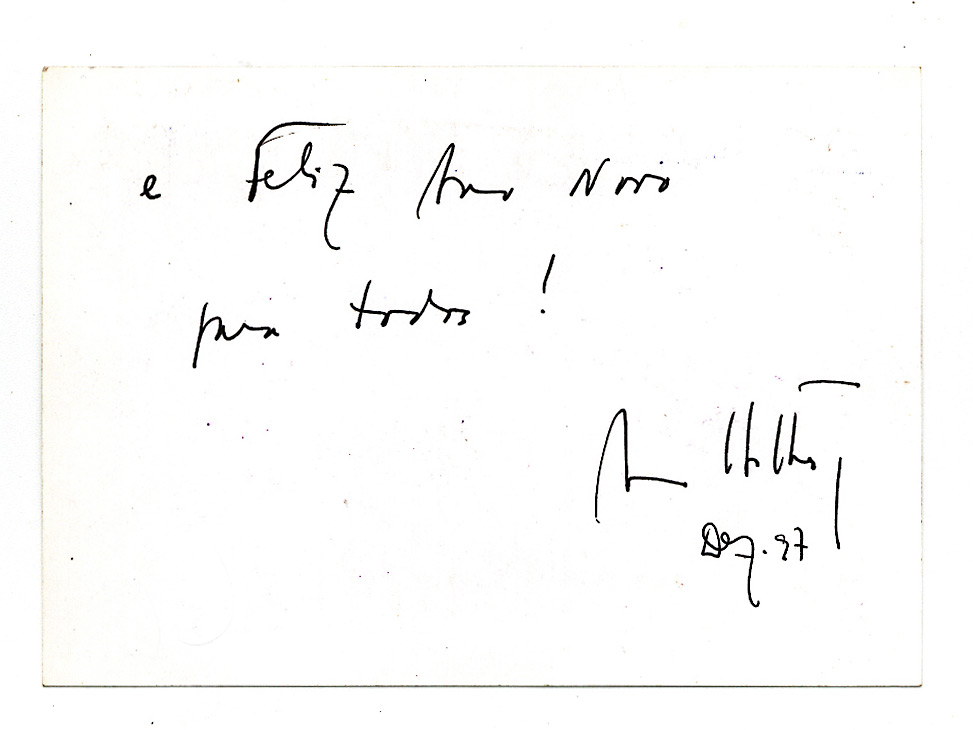 e Feliz Ano Novo
para todos!
Dez. 97